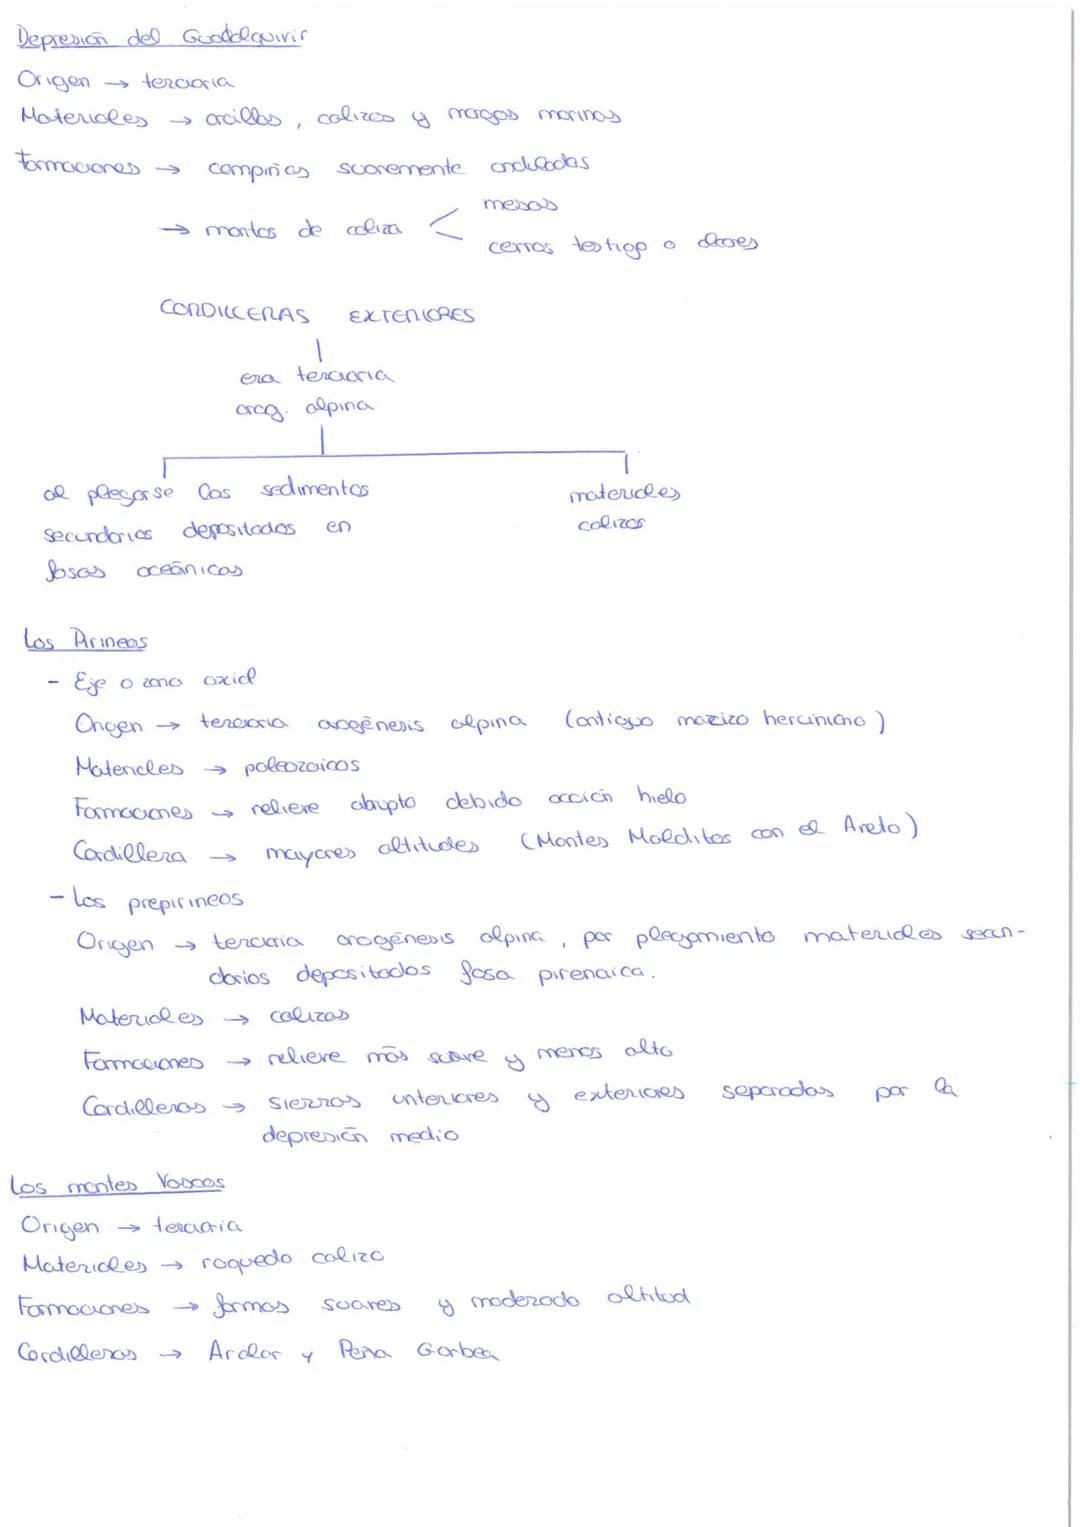 Depresión del Guadalquivir
Origen → terciaria
Materiales → arcillas, calizas y margas marinas
Formaciones → campiñas suavemente onduladas
→ mantos de caliza < mesas
cerros testigo o alcores
CORDILLERAS EXTERIORES
era terciaria
orog. alpina
al plegarse los sedimentos
secundarios depositados en
fosas oceánicas
materiales
calizos
Los Pirineos
- Eje o zona axial
Origen → terciaria orogénesis alpina (antiguo mazizo herciniano)
Materiales → paleozoicos
Formaciones → relieve abrupto debido acción hielo
Cordillera → mayores altitudes (Montes Malditos con el Aneto)
- Los prepirineos
Origen → terciaria orogénesis alpina, por plegamiento materiales secun-
darios depositados fosa pirenaica.
Materiales → calizas
Formaciones → relieve más suave y menos alto
Cordilleras → sierras interiores y exteriores separadas por la
depresión media
Los montes Vascos
Origen → terciaria
Materiales → roquedo calizo
Formaciones → formas suaves y moderada altitud
Cordilleras → Aralar y Peña Gorbea